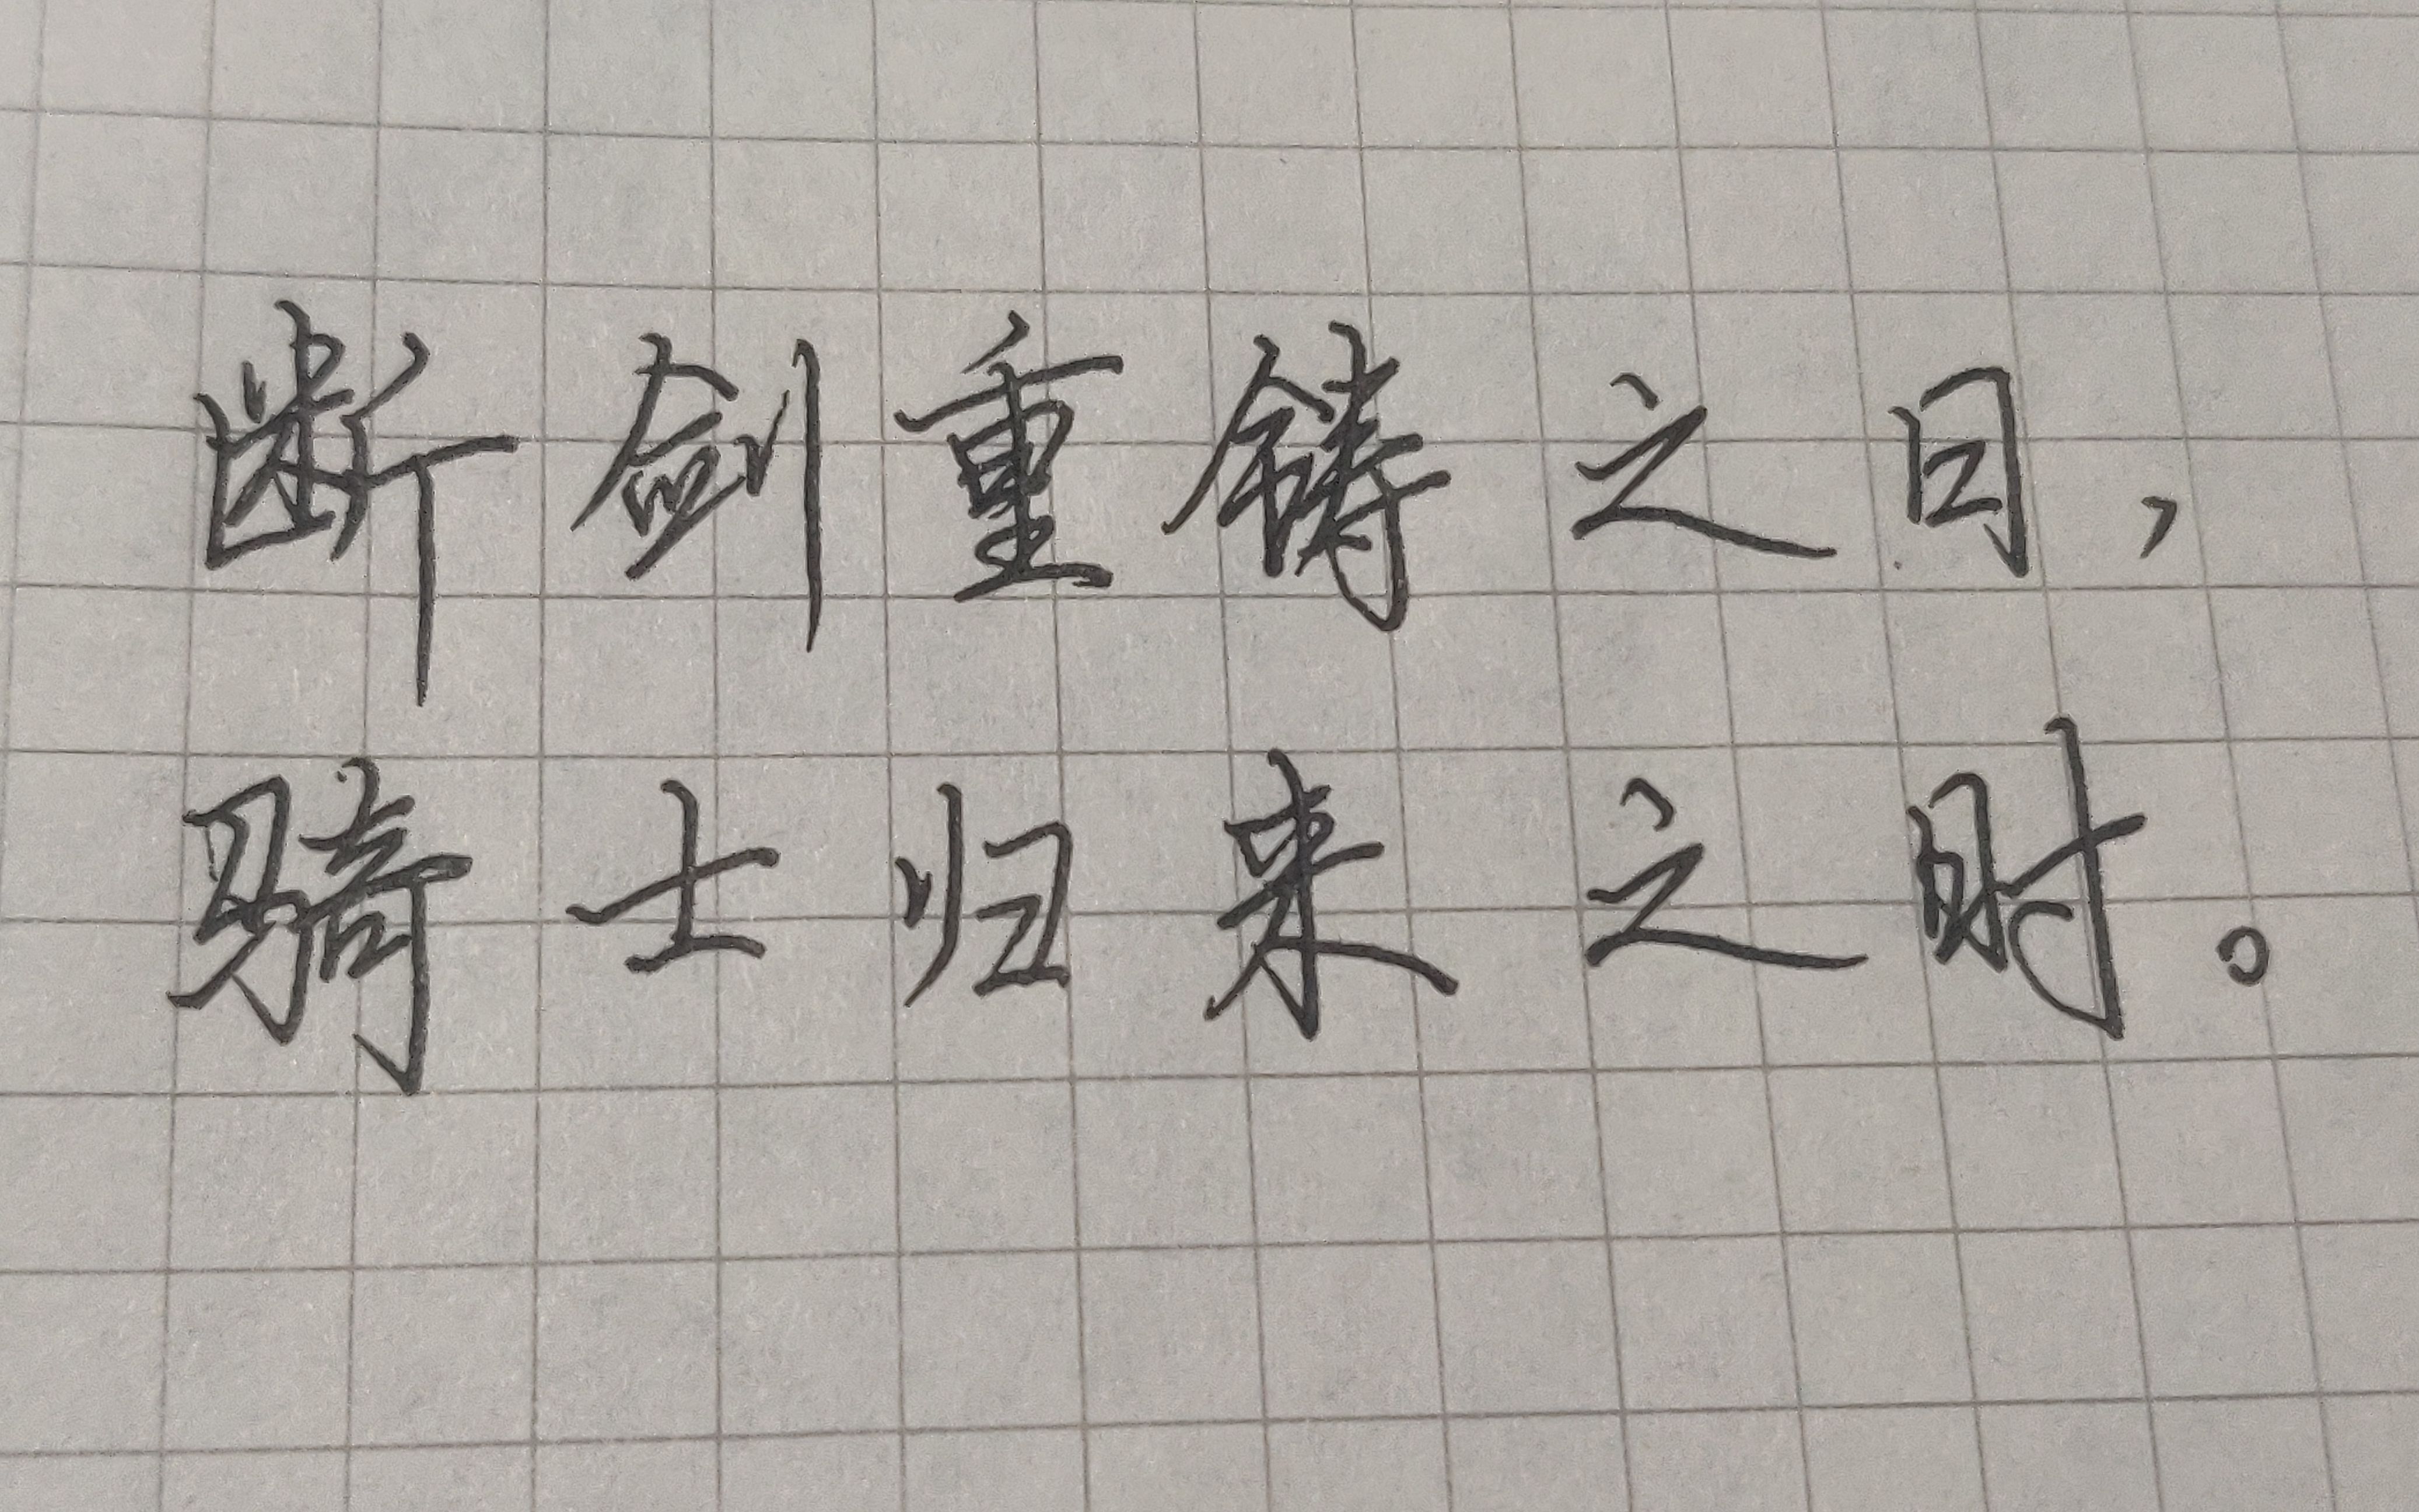 断剑重铸之日，
骑士归来之时。